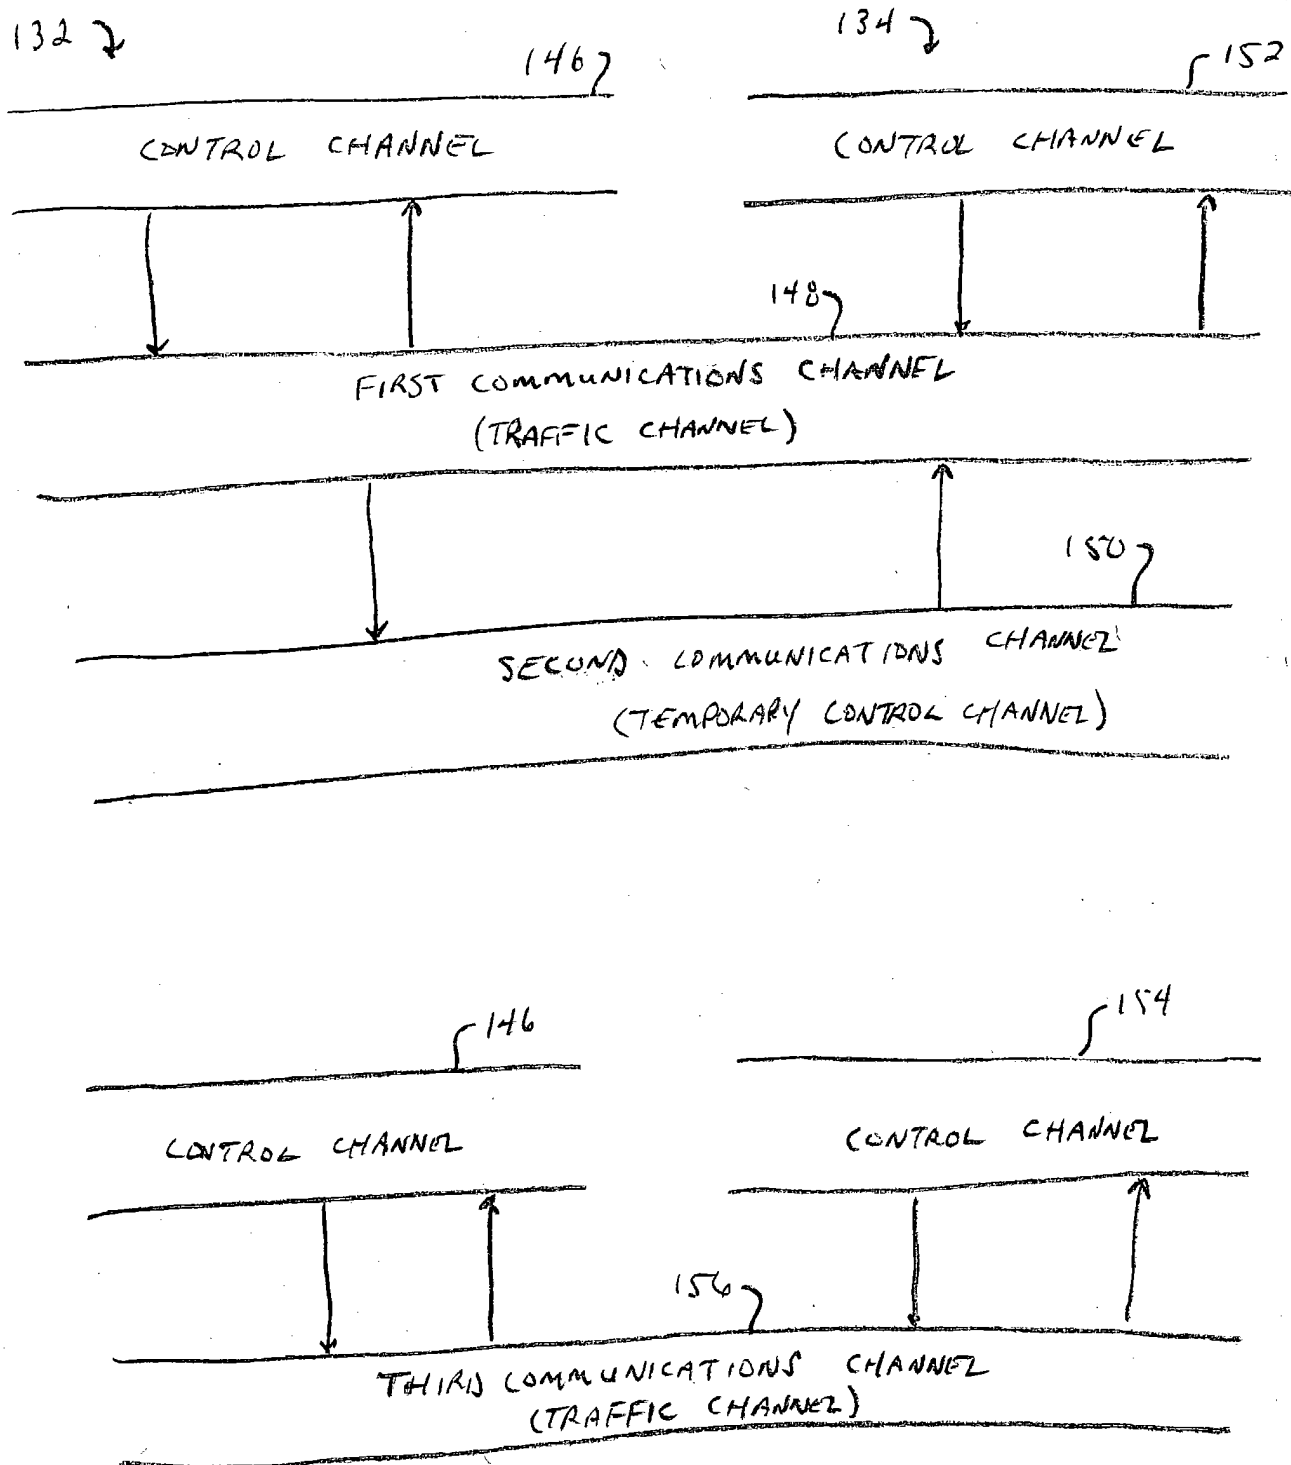 132
134
146
152
CONTROL CHANNEL
CONTROL CHANNEL
148
FIRST COMMUNICATIONS CHANNEL
(TRAFFIC CHANNEL)
150
SECOND COMMUNICATIONS CHANNEL
(TEMPORARY CONTROL CHANNEL)
146
154
CONTROL CHANNEL
CONTROL CHANNEL
156
THIRD COMMUNICATIONS CHANNEL
(TRAFFIC CHANNEL)